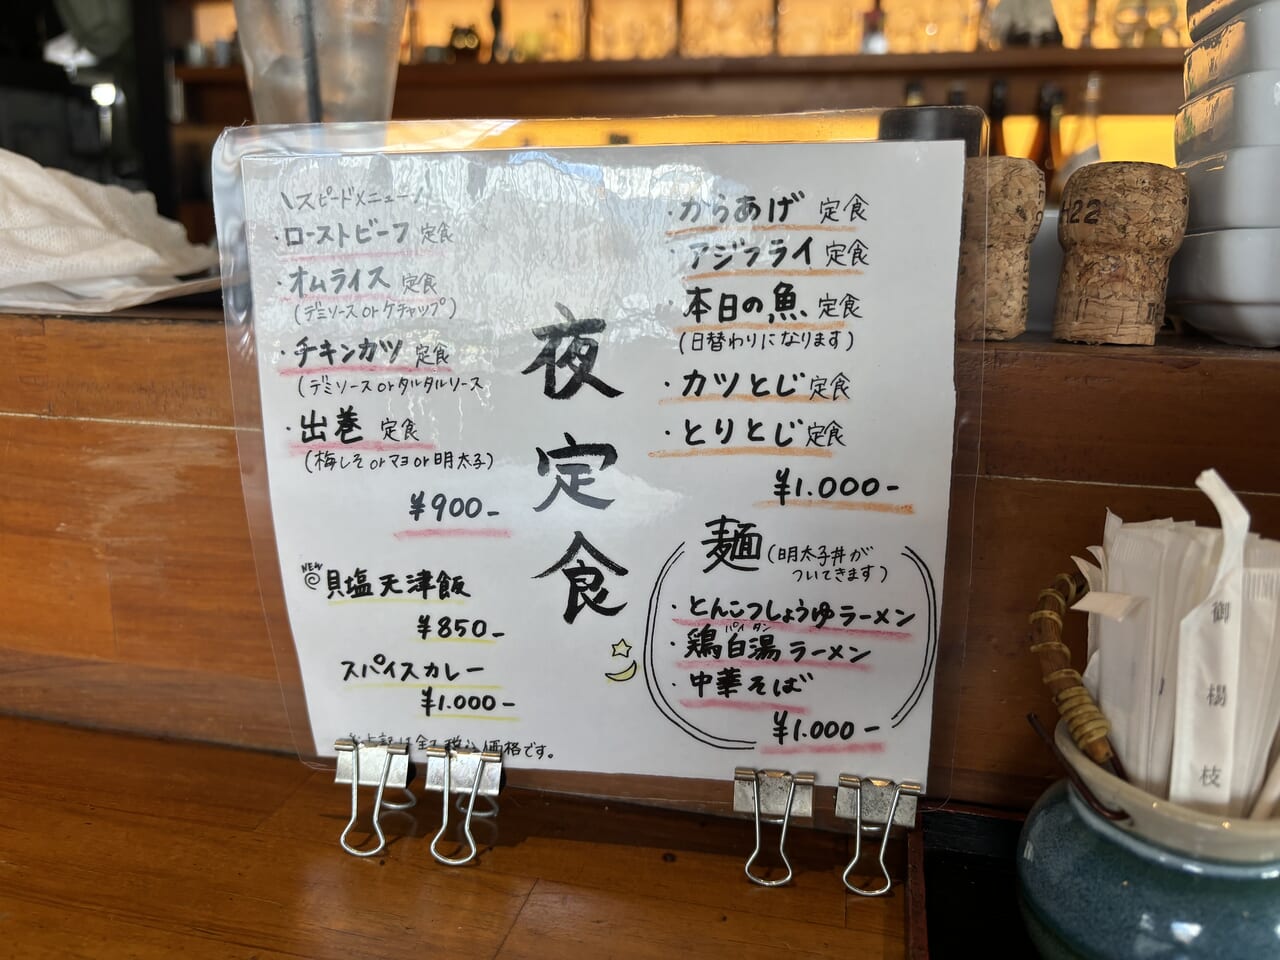 \スピードメニュー/
・ローストビーフ 定食
・オムライス 定食
(デミソース or ケチャップ)
・チキンカツ 定食
(デミソース or タルタルソース
・出巻 定食
(梅しそ or マヨ or 明太子)
¥900-
NEW
貝塩天津飯
¥850-
スパイスカレー
¥1.000-
※上記は全て税込価格です。
夜定食
・からあげ 定食
・アジフライ 定食
・本日の魚 定食
(日替わりになります)
・カツとじ 定食
・とりとじ 定食
¥1.000-
麺(明太子丼が
ついてきます)
・とんこつしょうゆラーメン
パイタン
・鶏白湯ラーメン
・中華そば
¥1.000-
H22
御楊枝